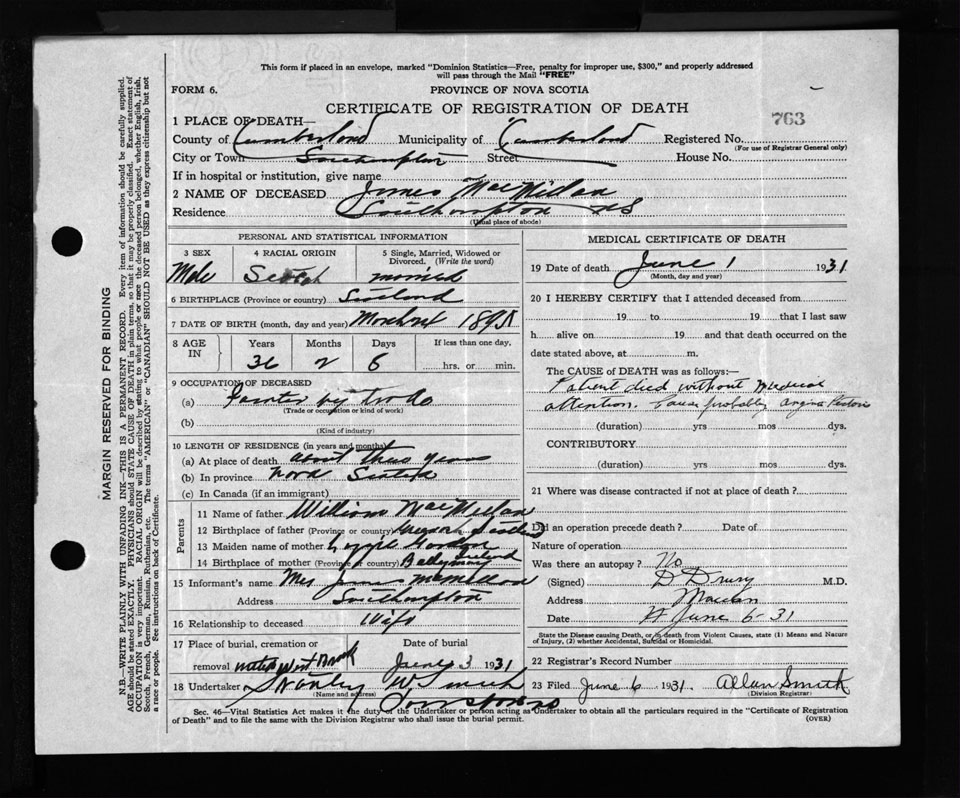 This form if placed in an envelope, marked "Dominion Statistics—Free, penalty for improper use, $300," and properly addressed
will pass through the Mail "FREE"
FORM 6. PROVINCE OF NOVA SCOTIA
CERTIFICATE OF REGISTRATION OF DEATH
763
1 PLACE OF DEATH—
County of Cumberland Municipality of Cumberland Registered No.
(For use of Registrar General only)
City or Town Southampton Street House No.
If in hospital or institution, give name
2 NAME OF DECEASED James MacMillan
Residence Southampton NS
(Usual place of abode)
PERSONAL AND STATISTICAL INFORMATION
3 SEX 4 RACIAL ORIGIN 5 Single, Married, Widowed or
Divorced. (Write the word)
Male Scotch married
6 BIRTHPLACE (Province or country) Scotland
7 DATE OF BIRTH (month, day and year) 1895
8 AGE IN Years Months Days If less than one day,
36 2 6 hrs. or min.
9 OCCUPATION OF DECEASED
(a) by trade
(Trade or occupation or kind of work)
(b)
(Kind of industry)
10 LENGTH OF RESIDENCE (in years and months)
(a) At place of death about three years
(b) In province Nova Scotia
(c) In Canada (if an immigrant)
Parents
11 Name of father William MacMillan
12 Birthplace of father (Province or country) Scotland
13 Maiden name of mother
14 Birthplace of mother (Province or country) Ireland
15 Informant's name Mrs James McMillan
Address Southampton
16 Relationship to deceased Wife
17 Place of burial, cremation or Date of burial
removal West Brook June 3 1931
18 Undertaker Stanley W Smith
(Name and address)
MEDICAL CERTIFICATE OF DEATH
19 Date of death June 1 1931
(Month, day and year)
20 I HEREBY CERTIFY that I attended deceased from
19 to 19 that I last saw
h alive on 19 and that death occurred on the
date stated above, at m.
The CAUSE of DEATH was as follows:—
Patient died without medical
attention. Cause probably angina
(duration) yrs mos dys.
CONTRIBUTORY
(duration) yrs mos dys.
21 Where was disease contracted if not at place of death?
Did an operation precede death? Date of
Nature of operation
Was there an autopsy? No
(Signed) D Drury M.D.
Address Maccan
Date June 6-31
State the Disease causing Death, or in death from Violent Causes, state (1) Means and Nature
of Injury, (2) whether Accidental, Suicidal or Homicidal.
22 Registrar's Record Number
23 Filed June 6 1931. Allan Smith
(Division Registrar)
Sec. 46—Vital Statistics Act makes it the duty of the Undertaker or person acting as Undertaker to obtain all the particulars required in the "Certificate of Registration
of Death" and to file the same with the Division Registrar who shall issue the burial permit. (OVER)
MARGIN RESERVED FOR BINDING
N.B.—WRITE PLAINLY WITH UNFADING INK—THIS IS A PERMANENT RECORD. Every item of information should be carefully supplied.
AGE should be stated EXACTLY. PHYSICIANS should STATE CAUSE OF DEATH in plain terms, so that it may be properly classified. Exact statement of
OCCUPATION is very important. RACIAL ORIGIN will be described by stating to what people or race the deceased person belonged, whether English, Irish,
Scotch, French, German, Russian, Ruthenian, etc. The terms "AMERICAN" or "CANADIAN" SHOULD NOT BE USED as they express citizenship but not
a race or people. See instructions on back of Certificate.